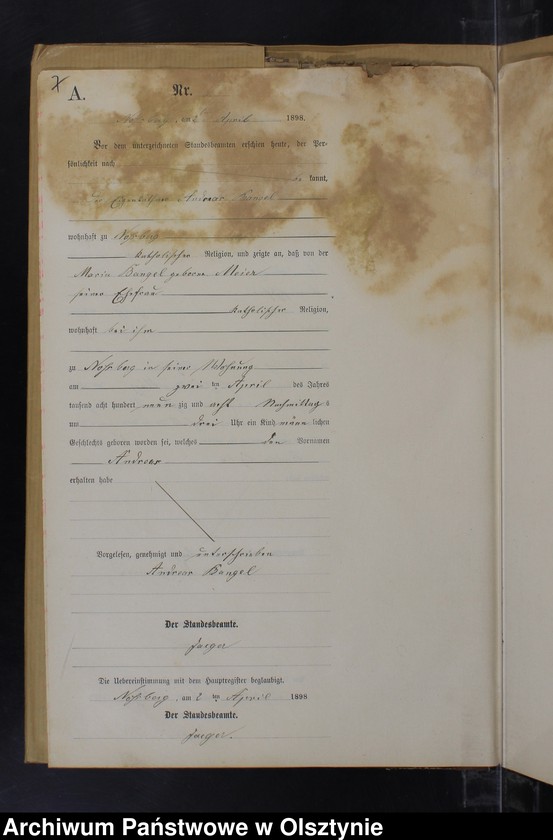 A. Nr.
Noßberg, am 2 April 1898.
Vor dem unterzeichneten Standesbeamten erschien heute, der Per-
sönlichkeit nach
kannt,
der Eigenkäthner Andreas Bangel
wohnhaft zu Noßberg
katholischer Religion, und zeigte an, daß von der
Maria Bangel geborne Meier
seiner Ehefrau
katholischer Religion,
wohnhaft bei ihm
zu Noßberg in seiner Wohnung
am zwei ten April des Jahres
tausend acht hundert neun zig und acht Nachmittags
um drei Uhr ein Kind männ lichen
Geschlechts geboren worden sei, welches den Vornamen
Andreas
erhalten habe
Vorgelesen, genehmigt und unterschrieben
Andreas Bangel
Der Standesbeamte.
Jaeger
Die Uebereinstimmung mit dem Hauptregister beglaubigt.
Noßberg, am 2 ten April 1898
Der Standesbeamte.
Jaeger.
Archiwum Państwowe w Olsztynie